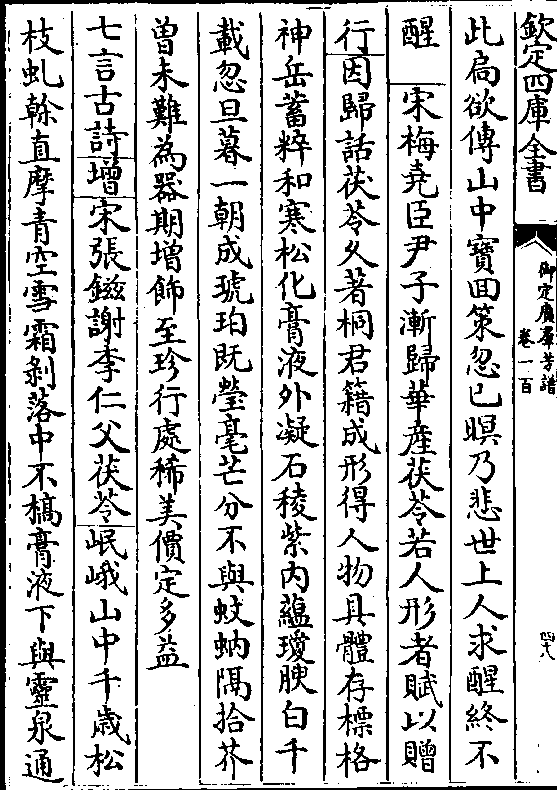 欽定四庫全書
御定廣羣芳譜
卷一百
四八
此扃欲傳山中寶回策忽已暝乃悲世上人求醒終不
醒　宋梅堯臣尹子漸歸華産茯苓若人形者賦以贈
行因歸話茯苓久著桐君籍成形得人物具體存標格
神岳蓄粹和寒松化膏液外凝石稜紫内蘊瓊腴白千
載忽旦暮一朝成琥珀既瑩毫芒分不與蚊蚋隔拾芥
曽未難為器期增飾至珍行處稀美價定多益
七言古詩增宋張鎡謝李仁父茯苓岷峨山中千歲松
枝虬榦直摩青空雪霜剝落中不槁膏液下與靈泉通